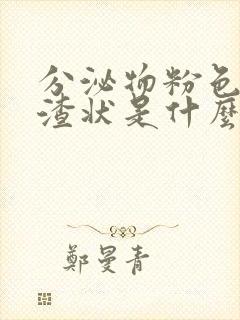 分泌物粉色
渣状是什麽
鄭曼青